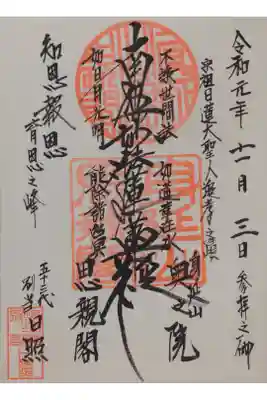 令和元年十一月三日参拝之砌
宗祖日蓮大聖人
身延山
奥之院
思親閣
如蓮華在水
不染世間法
南無妙法蓮華経
如日月光明
能除諸幽冥
知恩報恩
之峰
五十三代
別当 日照